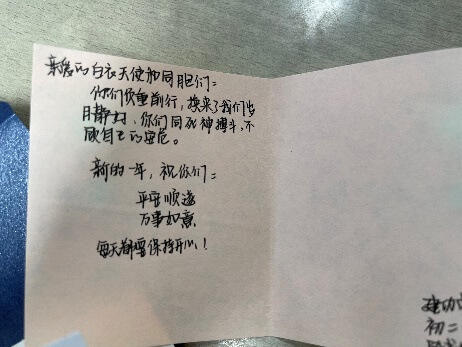 亲爱的白衣天使和同胞们：
你们负重前行，换来了我们岁
月静好，你们同死神搏斗，不
顾自己的安危。
新的一年，祝你们：
平安顺遂
万事如意
每天都要保持开心！
初二